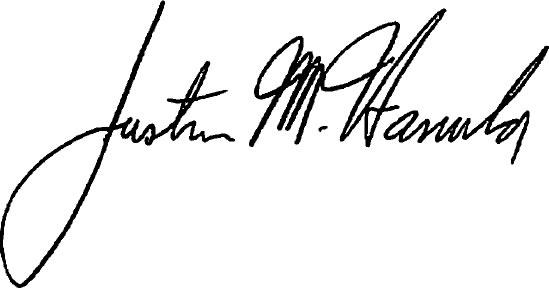 Justin M. Hanula